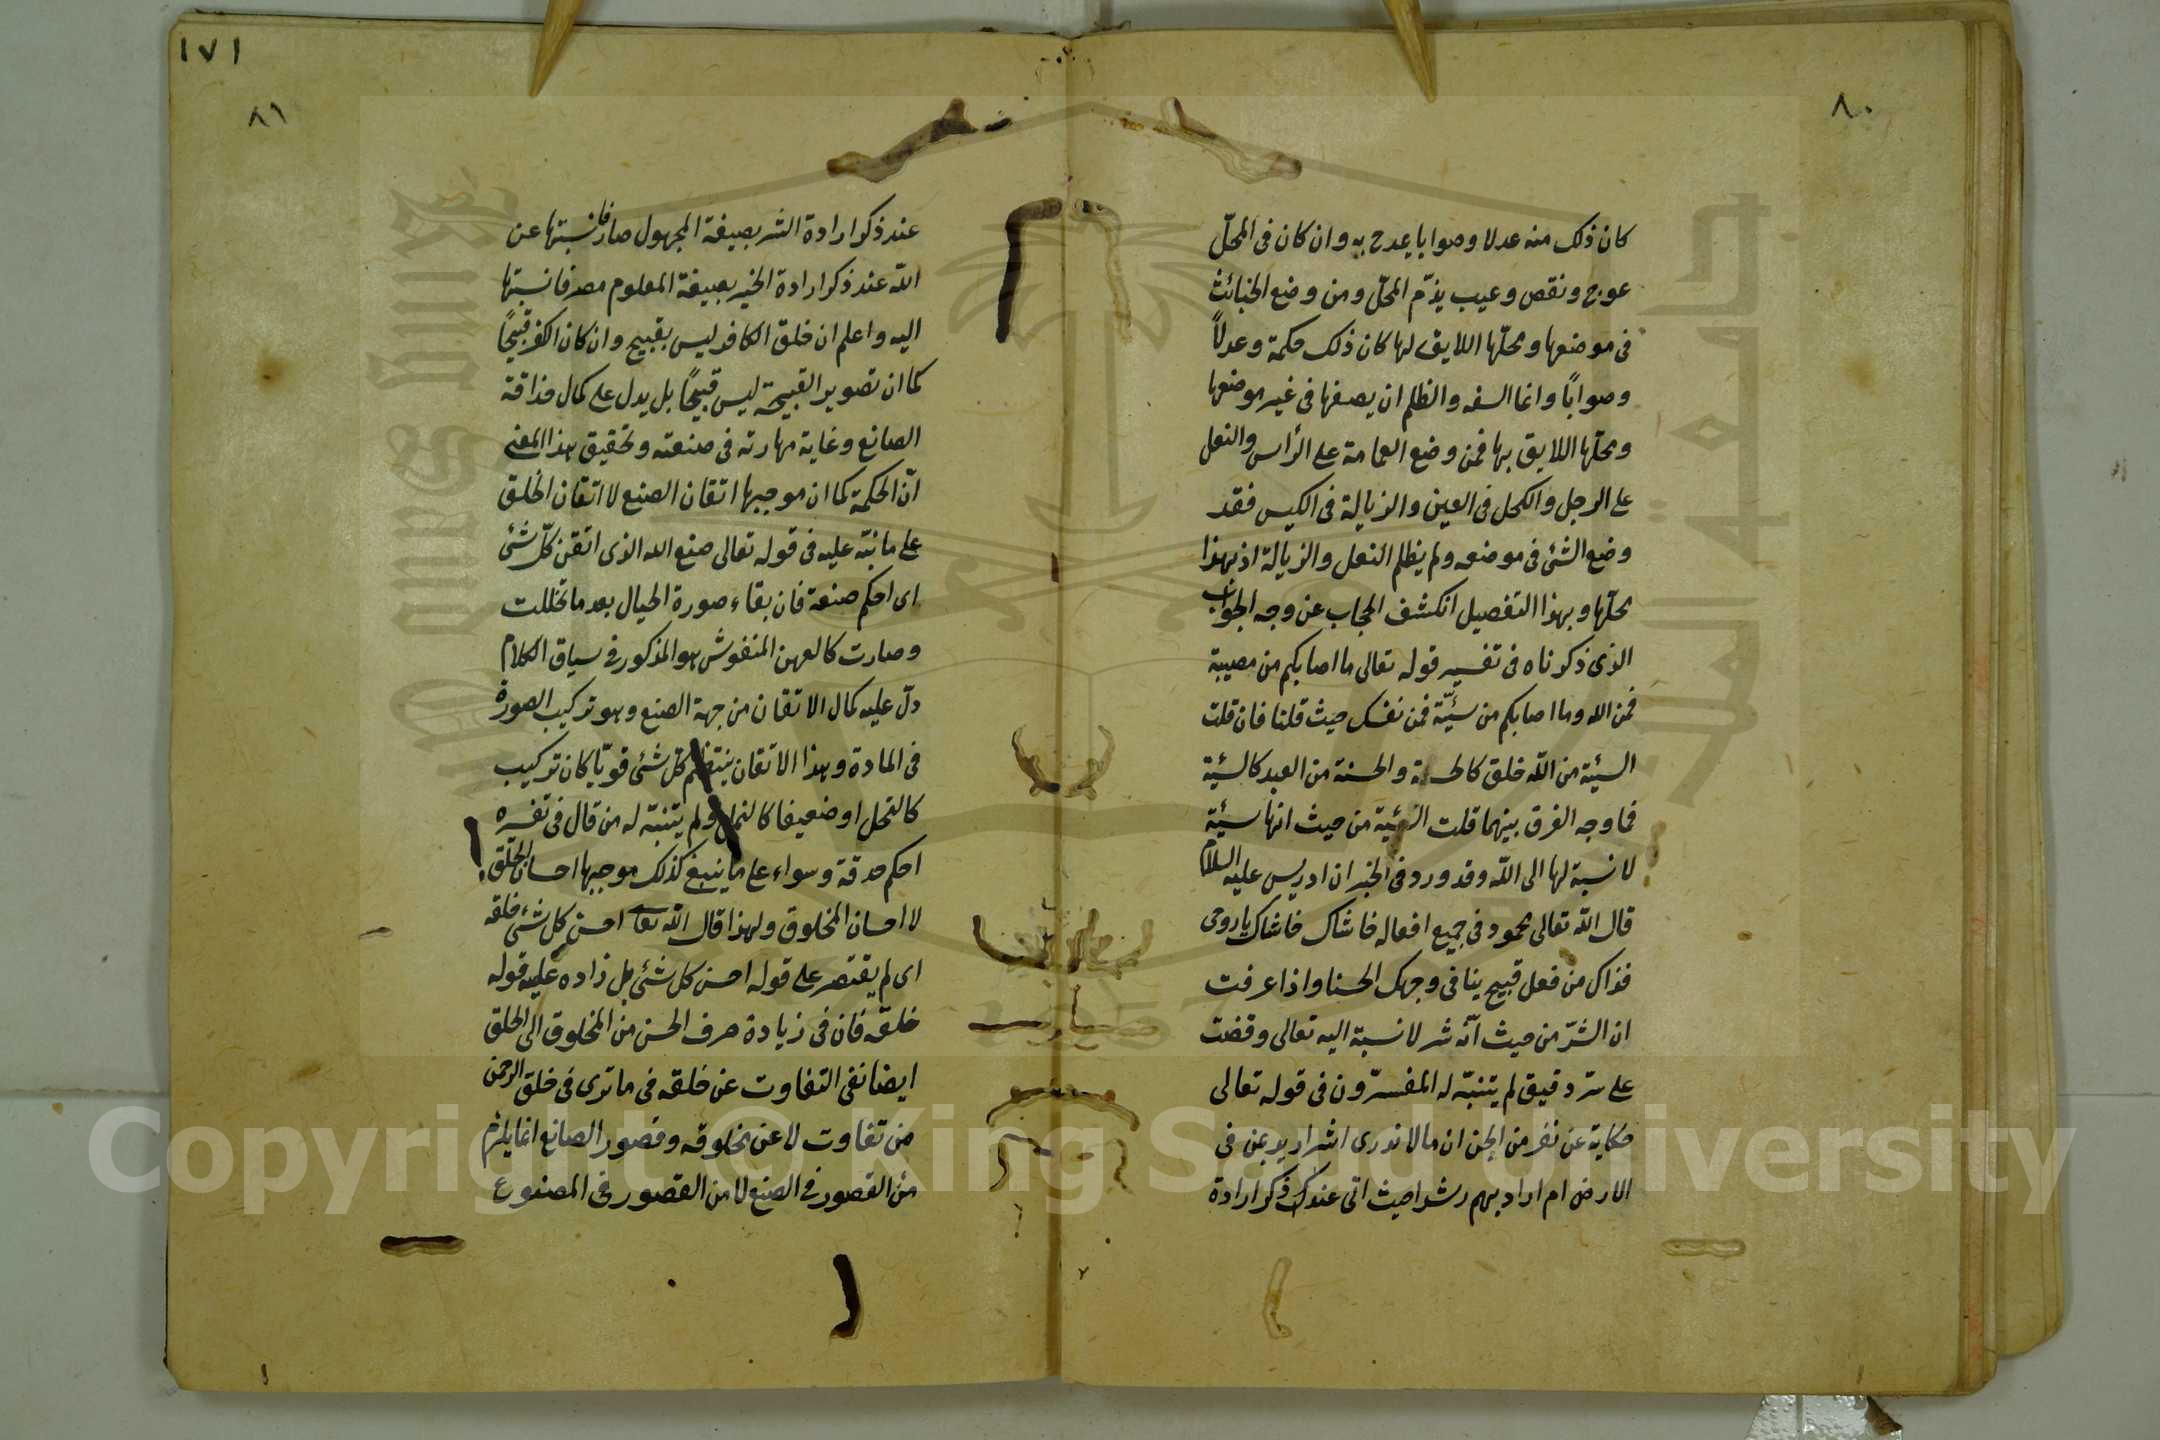 ٨٠
كان ذلك منه عدلا وصوابا يمدح به وان كان فى المحلّ
عوج ونقص وعيب يذّم المحلّ ومن وضع الخبائث
فى موضعها ومحلّها اللايق لها كان ذلك حكمة وعدلاً
وصواباً وانما السفه والظلم ان يضعها فى غير موضعها
ومحلّها اللايق بها فمن وضع العمامة على الرأس والنعل
على الرجل والكحل فى العين والزبالة فى الكيس فقد
وضع الشئ فى موضعه ولم يظلم النعل والزبالة اذ بهذا
محلّها وبهذا التفصيل انكشف الحجاب عن وجه الجواب
الذى ذكرناه فى تفسير قوله تعالى ما اصابكم من مصيبة
فمن الله وما اصابكم من سيّئة فمن نفسك حيث قلنا فان قلت
السيئة من الله خلق كالحسنة والحسنة من العبد كالسيّئة
فما وجه الفرق بينهما قلت السيئة من حيث انها سيئة
لا نسبة لها الى الله وقد ورد فى الخبر ان ادريس عليه السلام
قال الله تعالى محمود فى جميع افعاله حاشاك حاشاك يا روحى
فذاك من فعل قبيح ينافى وجهك الحسنا واذا عرفت
ان الشرّ من حيث انّه شر لا نسبة اليه تعالى وقفت
على سرّ دقيق لم يتنبّه له المفسرّون فى قوله تعالى
حكاية عن نفر من الجن ان ما لا ندرى اشر اريد بمن فى
الارض ام اراد بهم رشدا حيث اتى عند ذكر ارادة
١٧١
٨١
عند ذكر ارادة الشر بصيغة المجهول صارفا نسبتها عن
الله عند ذكر ارادة الخير بصيغة المعلوم مصرفا نسبتها
اليه واعلم ان خلق الكافر ليس بقبيح وان كان الكفر قبيحًا
كما ان تصوير القبيحة ليس قبيحًا بل يدل على كمال حذاقة
الصانع وغاية مهارته فى صنعته وتحقيق هذا المعنى
انّ الحكمة كما ان موجبها اتقان الصنع لا اتقان الخلق
على ما نبّه عليه فى قوله تعالى صنع الله الذى اتقن كلّ شئ
اى احكم صنعة فان بقاء صورة الجبال بعد ما تخللت
وصارت كالعهن المنفوش هو المذكور فى سياق الكلام
دلّ عليه كمال الاتقان من جهة الصنع وهو تركيب الصورة
فى المادة وهذا الاتقان ينتظم كل شئ قويّا كان تركيب
كالنحل او ضعيفا كالنمل ولم يتنبّه له من قال فى تفسيره
احكم حدقة وسواه على ما ينبغى كذلك موجبها احسان الخلق
لا احسان المخلوق ولهذا قال الله تعالى احسن كل شئ خلقه
اى لم يقتصر على قوله احسن كل شئ بل زاده عليه قوله
خلقه فان فى زيادة صرف الحسن من المخلوق الى الخلق
ايضا نفى التفاوت عن خلقه فى ما ترى فى خلق الرحمن
من تفاوت لا عن مخلوقه وقصور الصانع انما يلزم
من القصور فى الصنع لا من القصور فى المصنوع
Copyright © King Saud University